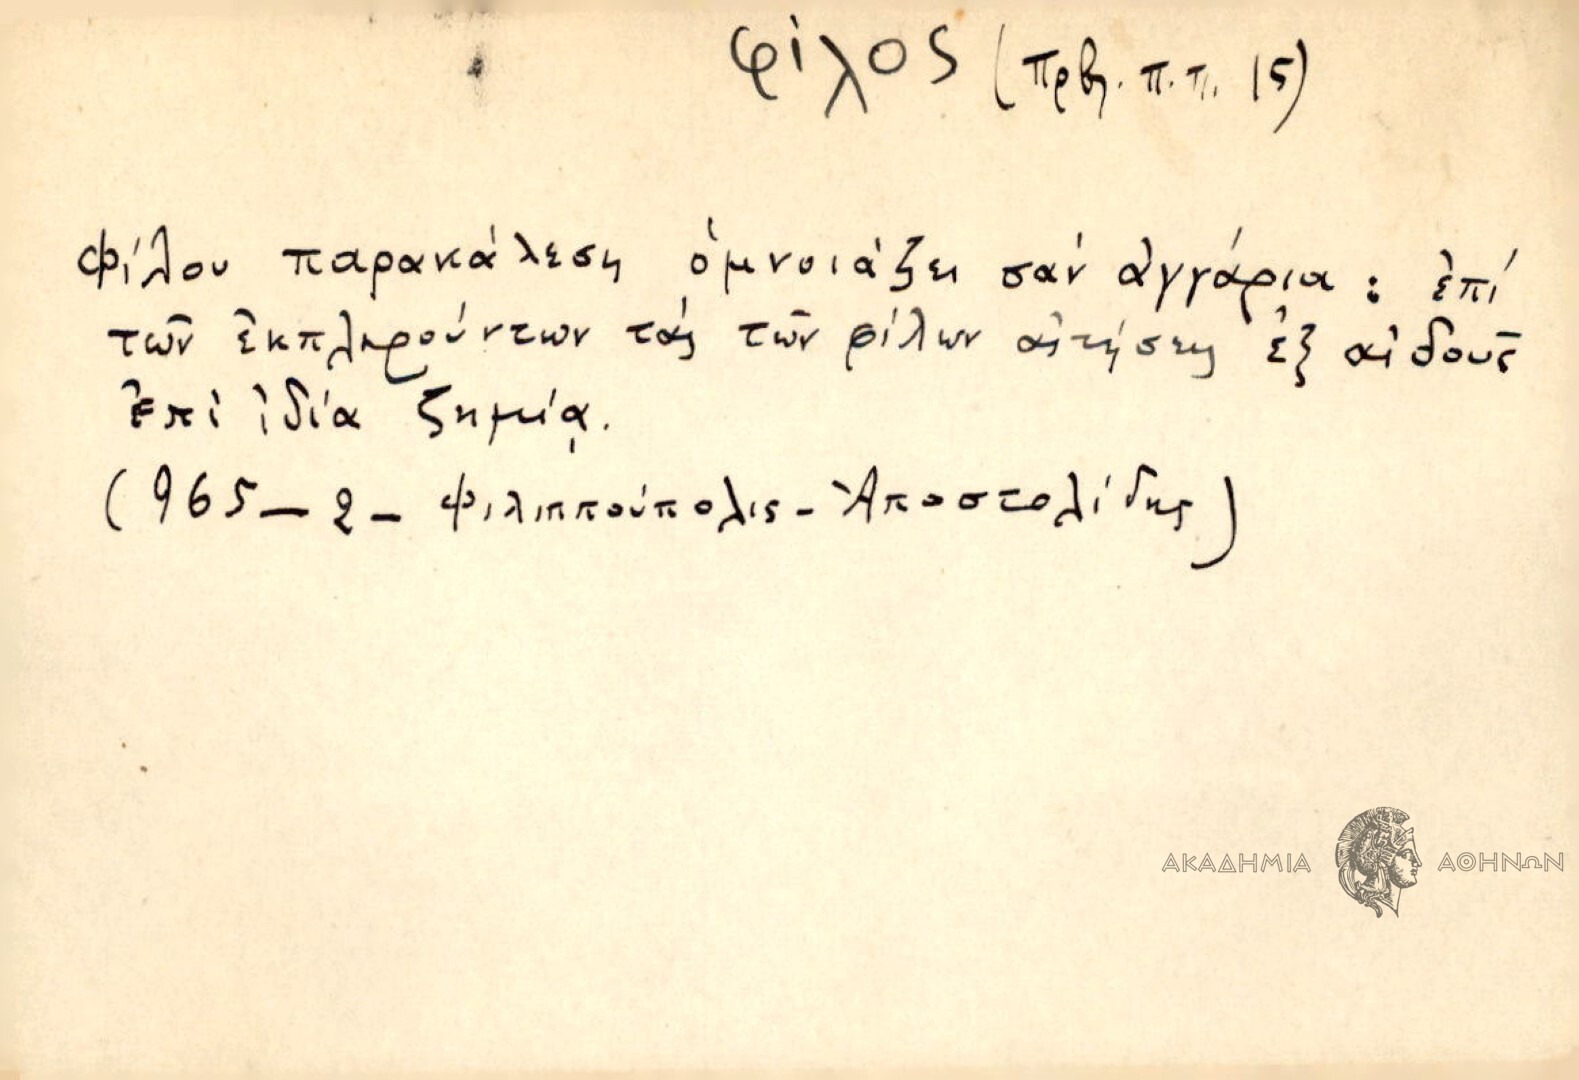 φίλος (πρβ. π.π. 15)
Φίλου παρακάλεση ὁμνοιάζει σάν ἀγγάρια : ἐπί
τῶν ἐκπληρούντων τάς τῶν φίλων αἰτήσεις ἐξ αἰδοῦς
ἐπί ἰδία ζημίᾳ.
(965 - 2 - Φιλιππούπολις - Ἀποστολίδης)
ΑΚΑΔΗΜΙΑ ΑΘΗΝΩΝ